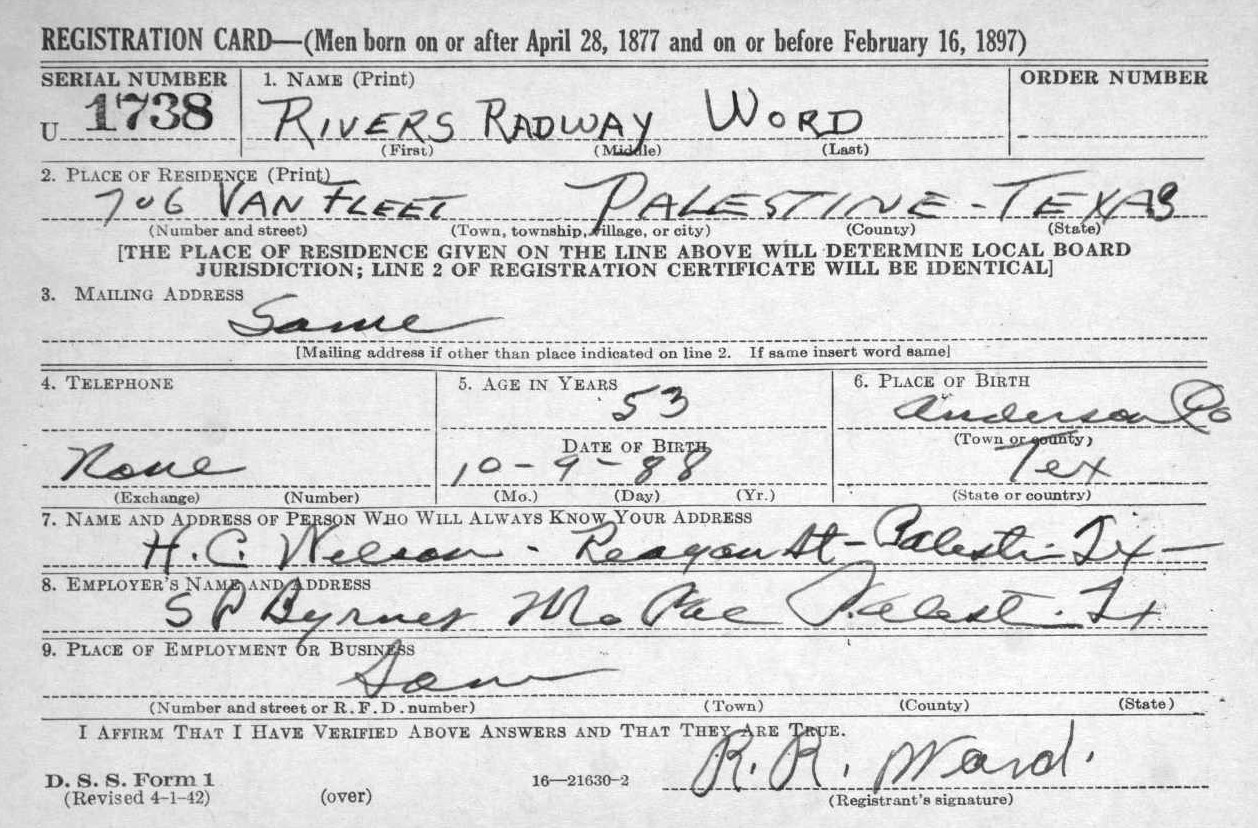 REGISTRATION CARD—(Men born on or after April 28, 1877 and on or before February 16, 1897)
SERIAL NUMBER 1. NAME (Print) ORDER NUMBER
U 1738 RIVERS RADWAY WORD
(First) (Middle) (Last)
2. PLACE OF RESIDENCE (Print)
706 VAN FLEET PALESTINE - TEXAS
(Number and street) (Town, township, village, or city) (County) (State)
[THE PLACE OF RESIDENCE GIVEN ON THE LINE ABOVE WILL DETERMINE LOCAL BOARD
JURISDICTION; LINE 2 OF REGISTRATION CERTIFICATE WILL BE IDENTICAL]
3. MAILING ADDRESS
Same
[Mailing address if other than place indicated on line 2. If same insert word same]
4. TELEPHONE 5. AGE IN YEARS 6. PLACE OF BIRTH
53 Anderson Co
DATE OF BIRTH (Town or county)
None 10-9-88 Tex
(Exchange) (Number) (Mo.) (Day) (Yr.) (State or country)
7. NAME AND ADDRESS OF PERSON WHO WILL ALWAYS KNOW YOUR ADDRESS
H. C. Welson - Reagan St - Palesti - Tx -
8. EMPLOYER'S NAME AND ADDRESS
S P Byrnes Mo Pac Palest. Tx
9. PLACE OF EMPLOYMENT OR BUSINESS
Sam
(Number and street or R. F. D. number) (Town) (County) (State)
I AFFIRM THAT I HAVE VERIFIED ABOVE ANSWERS AND THAT THEY ARE TRUE.
R. R. Word.
D. S. S. Form 1
(Revised 4-1-42) (over) 16—21630-2 (Registrant's signature)